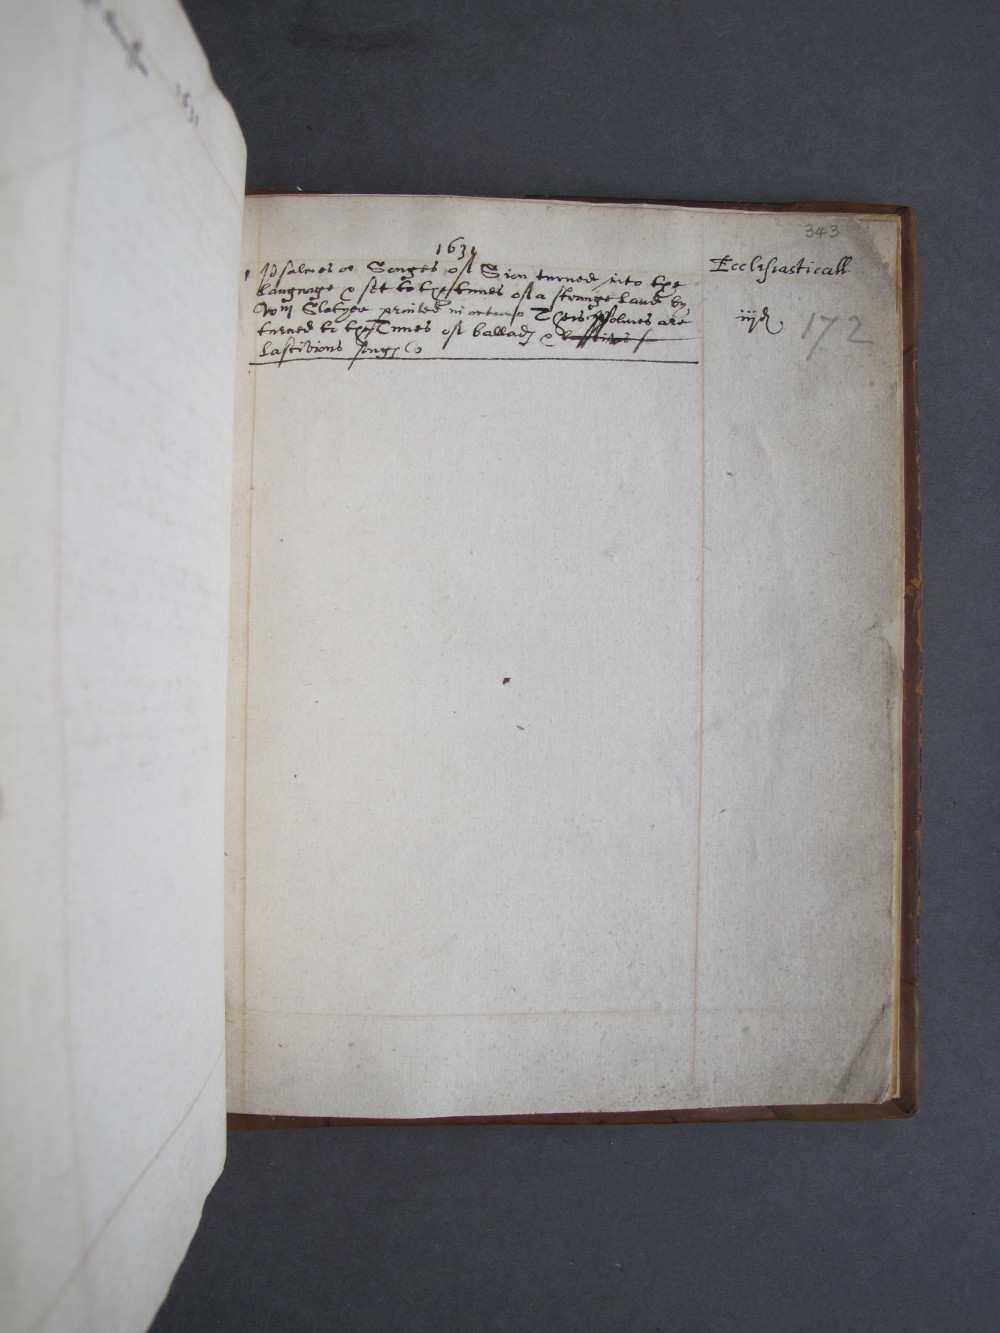 343
1631
Psalmes or Songes of Sion turned into the
Language & set to the tunes of a strange Land by
Wm Slatyer printed in octauo Theis Psolmes are
turned to the Tunes of ballads &
Lascivious songs
Ecclesiasticall
iijd
172